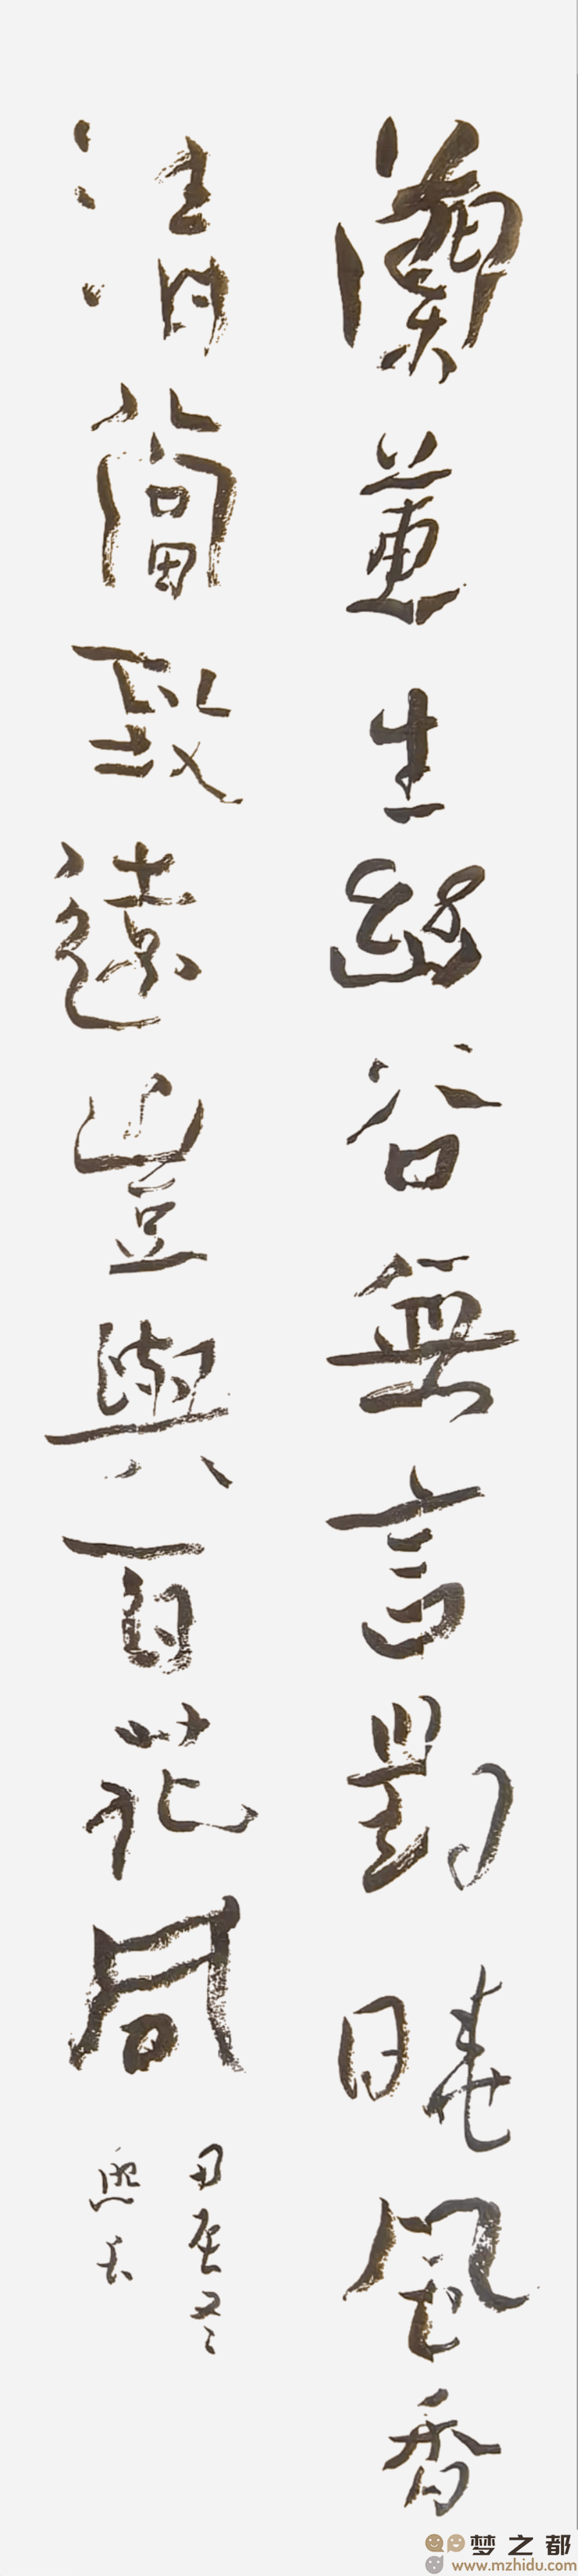 蘭蕙生幽谷無言對曉風香
清簡致遠豈與百花同
甲辰冬
梦之都
www.mzhidu.com